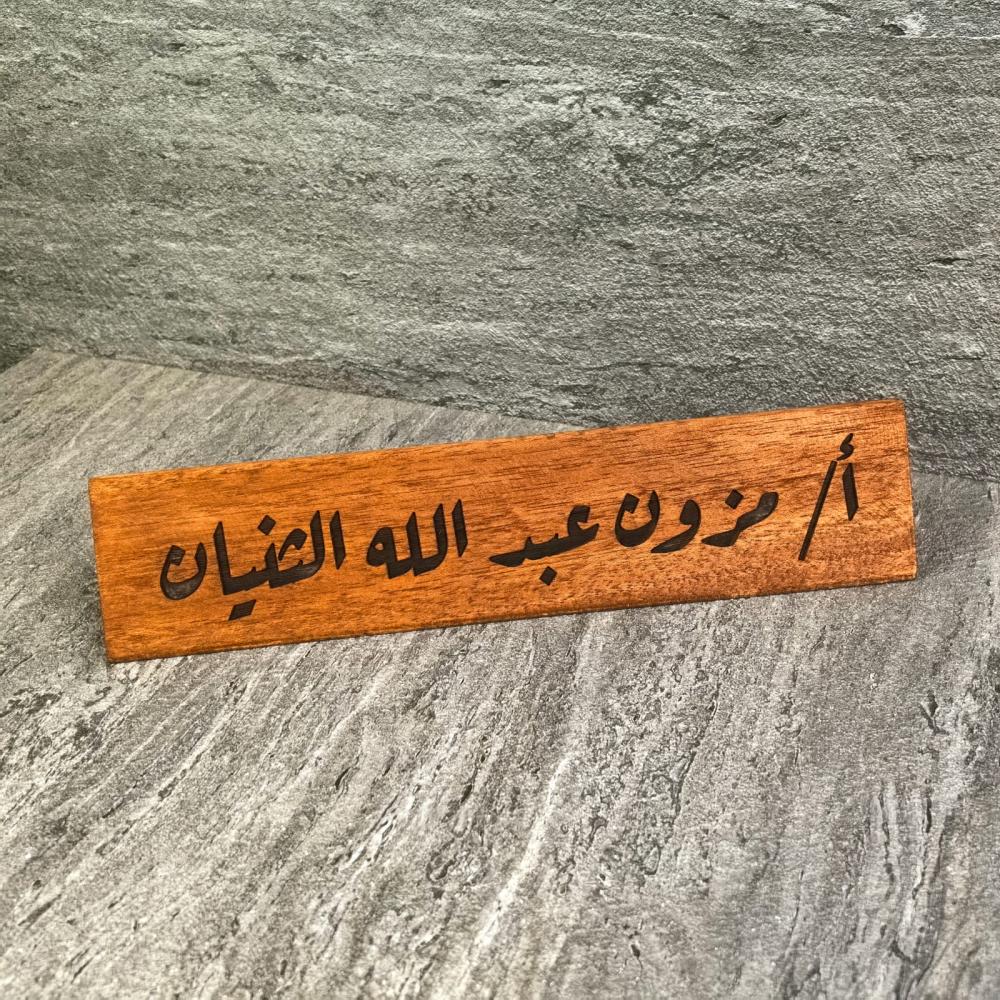 أ/ مزون عبد الله الثنيان